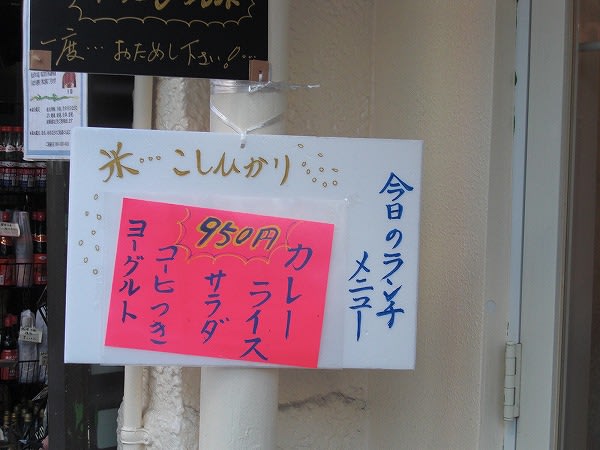 一度…おためし下さい!…
米…こしひかり…
今日のランチ
メニュー
950円
カレー
ライス
サラダ
コーヒつき
ヨーグルト